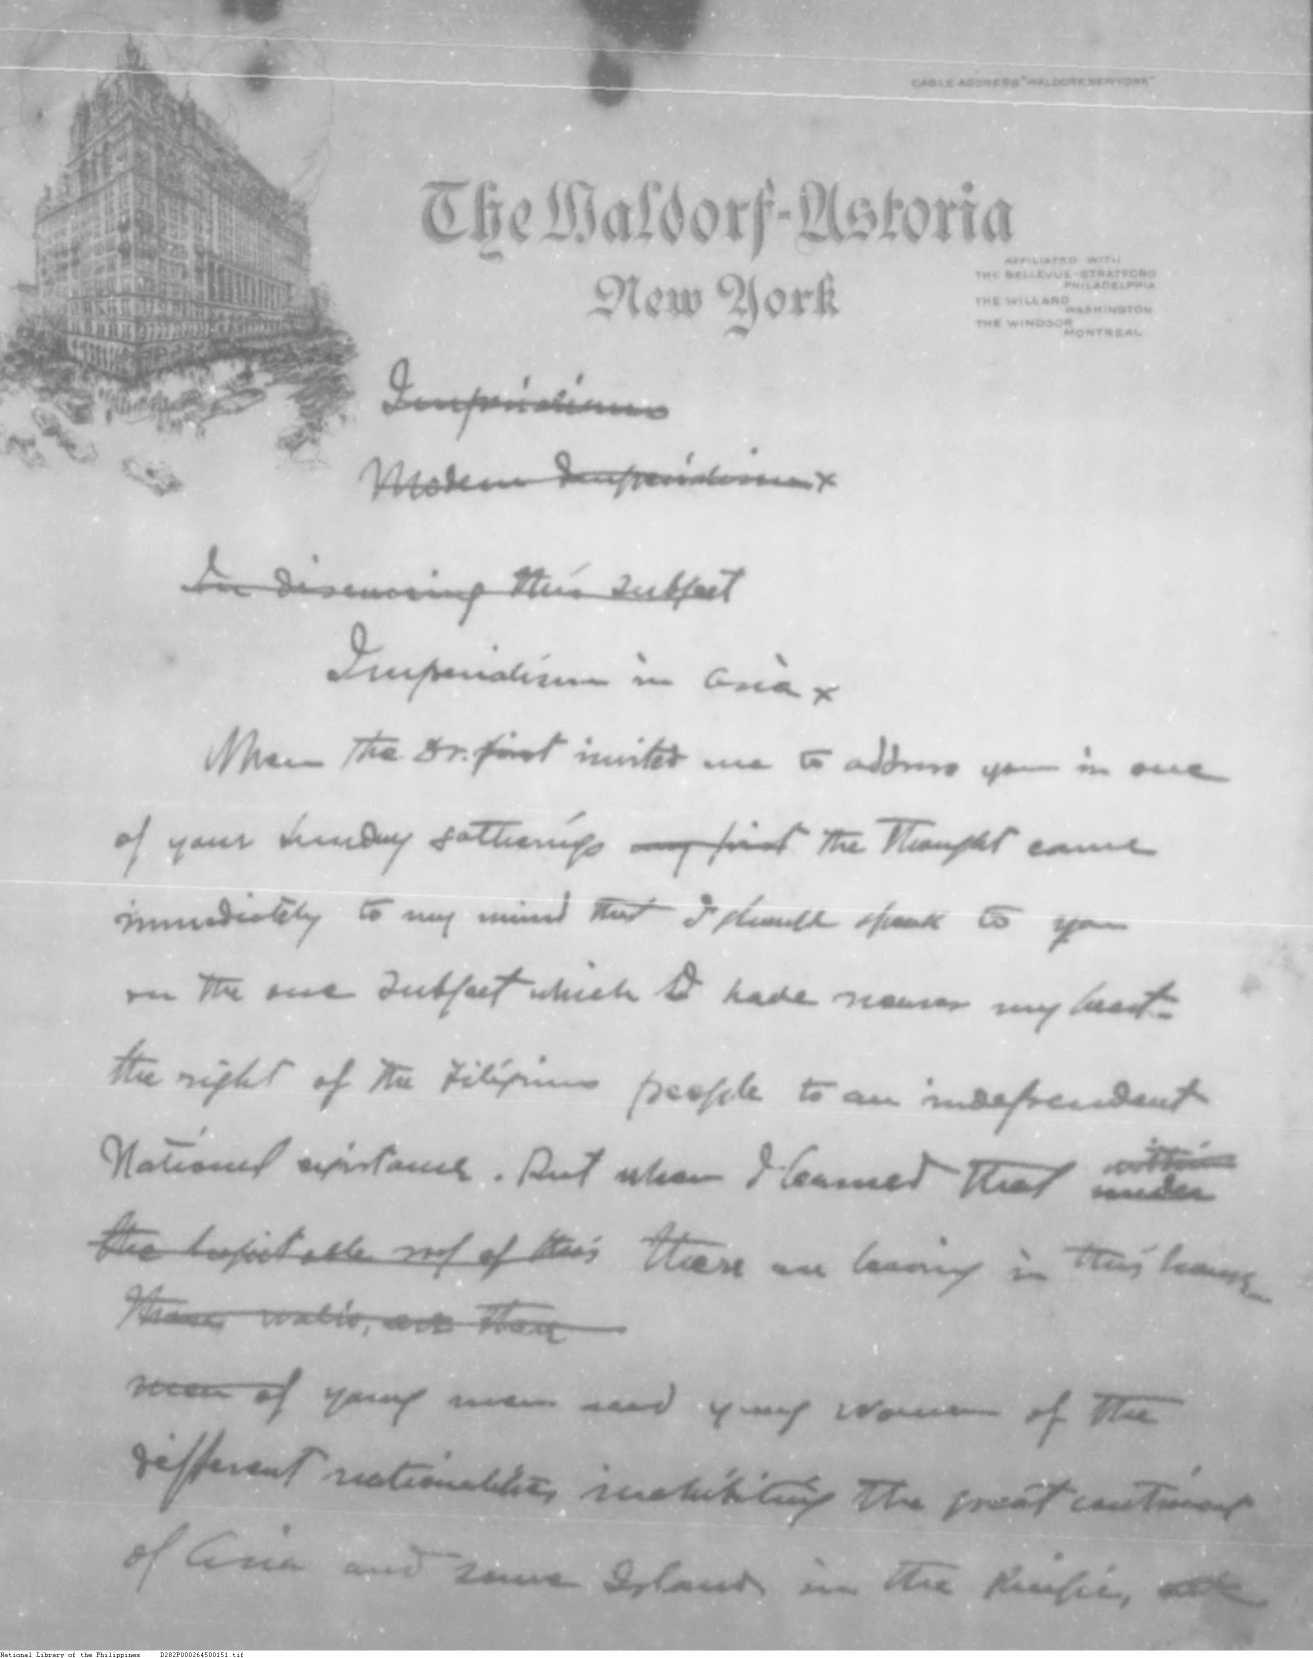 CABLE ADDRESS "WALDORF, NEW YORK"
The Waldorf-Astoria
New York
AFFILIATED WITH
THE BELLEVUE-STRATFORD
PHILADELPHIA
THE WILLARD
WASHINGTON
THE WINDSOR
MONTREAL
Imperialism
Modern Imperialism x
In discussing this subject
Imperialism in Asia x
When the Dr. first invited me to address you in one
of your Sunday gatherings my first the thought came
immediately to my mind that I should speak to you
on the one subject which I have nearer my heart-
the right of the Filipino people to an independent
National existence. But when I learned that within
under
the hospitable roof of this there are living in this house
these walls, are than
men of young men and young women of the
different nationalities inhabiting the great continent
of Asia and some Island in the Pacific,
National Library of the Philippines D282P000264500151.tif